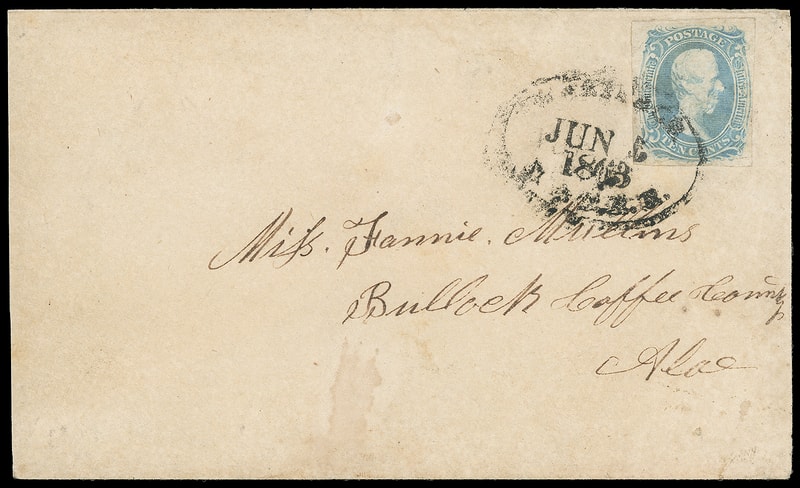 POSTAGE
TEN CENTS
JUN
1863
Miss. Fannie. Mullins
Bullock Coffee County
Ala